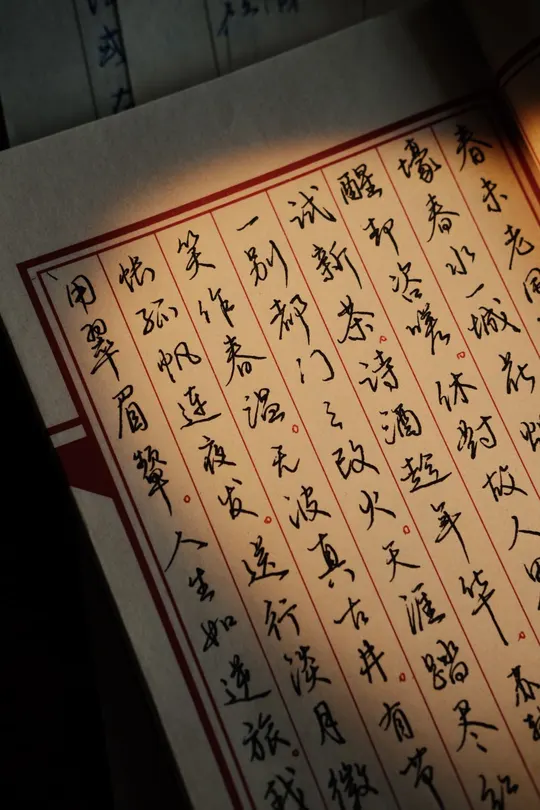 春未老风
壕春水一城花烟
醒却咨嗟。休对故人思
试新茶。诗酒趁年华。苏轼
一别都门三改火。天涯踏尽红
笑作春温。无波真古井。有节
怅孤帆连夜发。送行淡月微
用翠眉颦。人生如逆旅。我
或